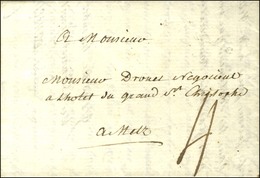 A Monsieur
Monsieur Drouet Negocient
a Lhotel du grand St. Christophe
a Metz
4